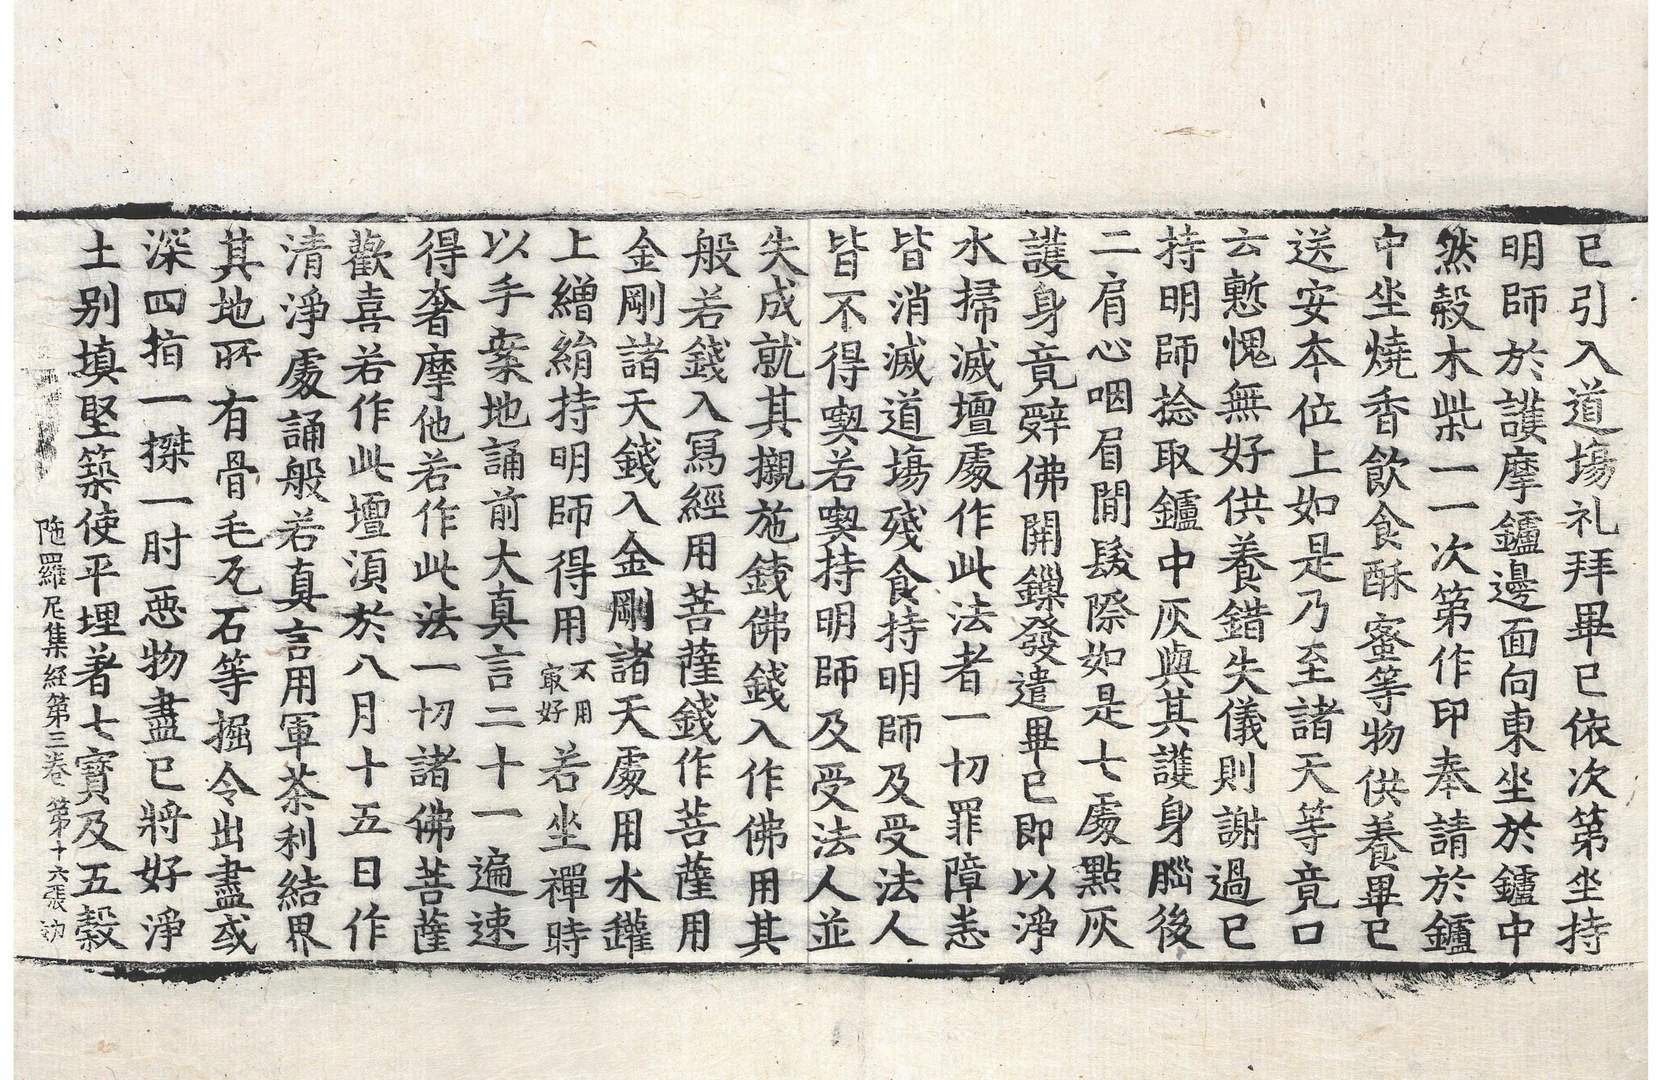 已引入道場礼拜畢已依次第坐持
明師於護摩鑪邊面向東坐於鑪中
然穀木柴一一次第作印奉請於鑪
中坐燒香飲食酥蜜等物供養畢已
送安本位上如是乃至諸天等竟口
云慙愧無好供養錯失儀則謝過已
持明師捻取鑪中灰與其護身腦後
二肩心咽眉間髮際如是七處點灰
護身竟辤佛開鏁發遣畢已即以淨
水掃滅壇處作此法者一切罪障悉
皆消滅道場殘食持明師及受法人
皆不得喫若喫持明師及受法人並
失成就其攡施錢佛錢入作佛用其
般若錢入寫經用菩薩錢作菩薩用
金剛諸天錢入金剛諸天處用水鑵
上繒絹持明師得用不用寂好若坐禪時
以手案地誦前大真言二十一遍速
得奢摩他若作此法一切諸佛菩薩
歡喜若作此壇湏於八月十五日作
清淨處誦般若真言用軍荼利結界
其地所有骨毛瓦石等掘令出盡或
深四指一搩一肘惡物盡已將好淨
土別填堅築使平埋著七寶及五穀
陁羅尼集経第三卷 第十六張 効